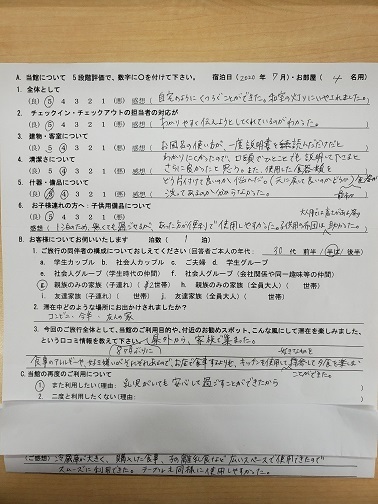 A. 当館について 5段階評価で、数字に○を付けて下さい。 宿泊日(2020年 7月)・お部屋( 4 名用)
1. 全体として
(良) 5 4 3 2 1 (悪) 感想( 自宅のようにくつろぐことができた。和室の灯りにいやされました。)
2. チェックイン・チェックアウトの担当者の対応が
(良) 5 4 3 2 1 (悪) 感想( わかりやすく伝えようとしてくれているのがわかった。 )
3. 建物・客室について
(良) 5 4 3 2 1 (悪) 感想( お風呂の使い方が、一度説明書を読んだだけだと
4. 清潔さについて わかりにくかったので、口頭でちょっとでも説明して下さると
(良) 5 4 3 2 1 (悪) 感想( さらに良かったと思う。また、使用した食器類を
5. 什器・備品について どう片付けて良いのか
(良) 5 4 3 2 1 (悪) 感想( 洗ってあるのか分からなかった。 )
6. お子様連れの方へ:子供用備品について
(良) 5 4 3 2 1 (悪)
感想( 1泊のため、無くても過ごせるが、あった方が便利で使用しやすかった。子供用の布団は助かった。)
B. お客様についてお伺いいたします 泊数( 1 泊)
1. ご旅行の同伴者の構成についておしえてください(回答者ご本人の年代… 30 代 前半/半ば/後半)
a. 学生カップル b. 社会人カップル c. ご夫婦 d. 学生グループ
e. 社会人グループ(学生時代の仲間) f. 社会人グループ(会社関係や同一趣味等の仲間)
g. 親族のみのご家族(子連れ)(2世帯) h. 親族のみのご家族(全員大人)( 世帯)
i. 友達家族(子連れ)( 世帯) j. 友達家族(全員大人)( 世帯)
2. 滞在中どのような場所にお出かけされましたか?
( コンビニ・
3. 今回のご旅行全体として、当館のご利用目的や、付近のお勧めスポット、こんな風にして滞在を楽しみました、
という口コミ情報を教えて下さい。 県外から、家族で集まった。
C. 当館の再度のご利用について ことができた。
1. また利用したい(理由: 乳児がいても安心して過ごすことができたから )
2. 二度と利用したくない(理由: )
(ご感想) 冷蔵庫が大きく、購入した食事、子の離乳食など広いスペースで使用できたので
スムーズに利用できた。テーブルも同様に使用しやすかった。